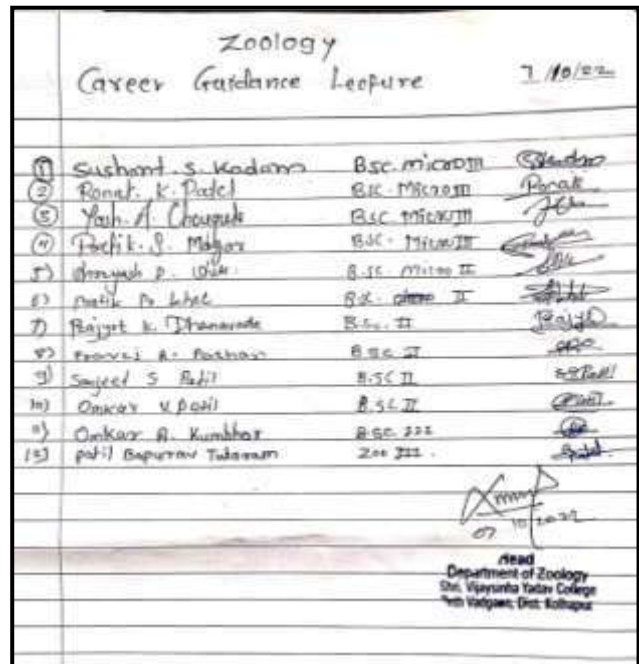 Zoology
Career Guidance Lecture 7/10/22
① Sushant. S. Kadam Bsc. micro III
② Ronit. K. Patel BSC. Micro III
③ Yash. A. Chougule BSC micro III
④ Pratik. S. Magar BSC. Micro III
5) P. B.SC Micro II
6) Pratik B.SC. II
7) K. Dhanavade B.Sc. II
8) A. Pathan B.SC II
9) S Patil B.SC II SSPatil
10) Omkar V. Patil B.SC II
11) Omkar R. Kumbhar B.SC. III
12) patil Bapurrav Tukaram Zoo III.
07/10/2022
Head
Department of Zoology
Shri. Vijaysinha Yadav College
Peth Vadgaon, Dist. Kolhapur